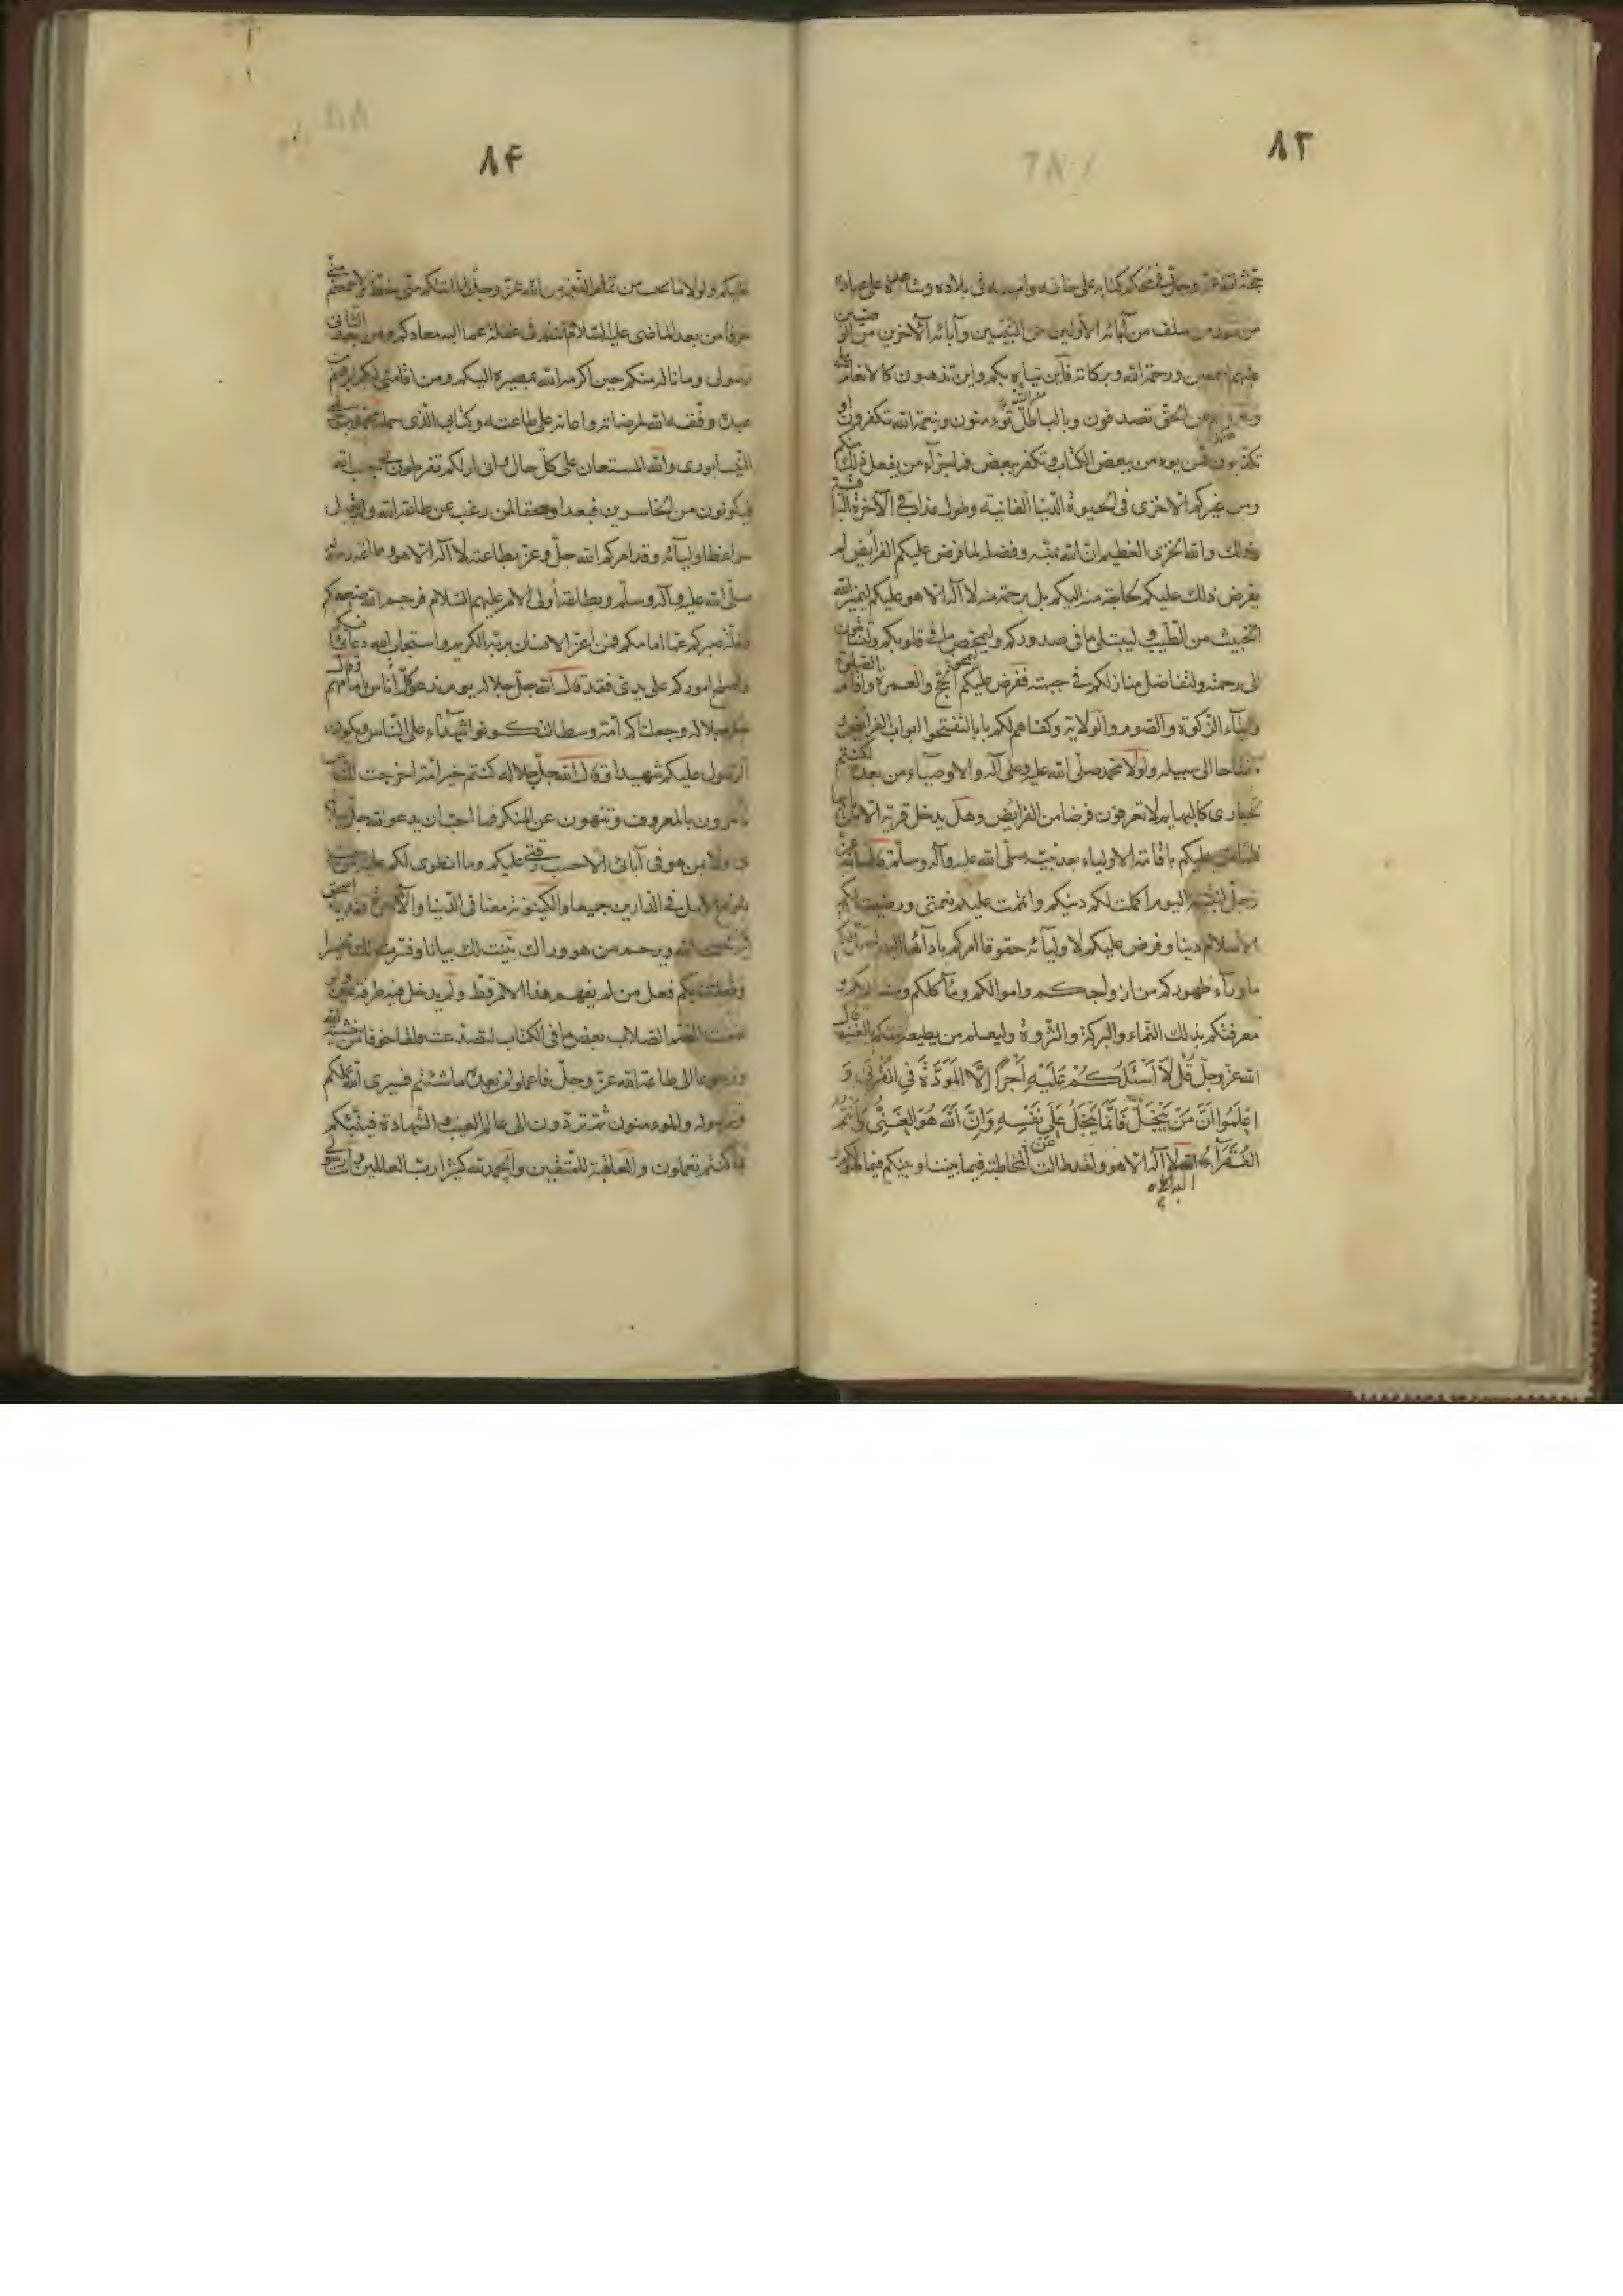 ۸۳
حجة الله عز وجل في محكم كتابه على خلقه وامينه في بلاده وشاهده على عباده
من سلف من آبائه الاولين من النبيين وآبائه الآخرين من الوصيين
عليهم اجمعين ورحمة الله وبركاته فاين يتاه بكم واين تذهبون كالانعام
عن الحق تصدفون وبالباطل تؤمنون وبنعمة الله تكفرون او
تكذبون فمن يؤمن ببعض الكتاب ويكفر ببعض فما جزآء من يفعل ذلك منكم
ومن غيركم الا خزى في الحيوة الدنيا الفانية وطول عذاب في الآخرة الباقية
وذلك والله الخزى العظيم ان الله بمنه وفضله لما فرض عليكم الفرايض لم
يفرض ذلك عليكم لحاجة منه اليكم بل برحمة منه لا آله الا هو عليكم ليميز الله
الخبيث من الطيب وليبتلى ما فى صدوركم وليمحص ما في قلوبكم
الى رحمته ولتفاضل منازلكم في جنته ففرض عليكم الحج والعمرة واقام الصلوة
وايتآء الزكوة والصوم والولاية وكفاهم لكم بابا لتفتحوا ابواب الفرايض
مفتاحا الى سبيله ولولا محمد صلى الله عليه وعلى آله والاوصيآء من بعده لكنتم
حيارى كالبهايم لا تعرفون فرضا من الفرايض وهل يدخل قرية الا من بابها
فلما من عليكم باقامة الاولياء بعد نبيه صلى الله عليه وآله وسلم قال الله عز
وجل لنبيه اليوم اكملت لكم دينكم واتممت عليكم نعمتى ورضيت لكم
الاسلام دينا وفرض عليكم لاوليآئه حقوقا امركم بادآئها اليهم ليحل لكم
ما ورآء ظهوركم من ازواجكم واموالكم ومآكلكم ومشاربكم
معرفتكم بذلك النماء والبركة والثروة وليعلم من يطيعه منكم بالغيب قال
الله عز وجل قُل لَا أَسْئَلُكُمْ عَلَيْهِ أَجْرًا إِلَّا الْمَوَدَّةَ فِي الْقُرْبَى وَ
اعْلَمُوا أَنَّ مَنْ يَبْخَلُ فَإِنَّمَا يَبْخَلُ عَلَى نَفْسِهِ وَإِنَّ اللَّهَ هُوَ الْغَنِيُّ وَأَنْتُمُ
الفُقَرَآءُ اليه لا آله الا هو ولقد طالت المخاطبة فيما بيننا وبينكم فيما هو لكم
۸۴
عليكم ولولا ما يحب من تمام النعمة من الله عز وجل لما اتتكم منى خط
حرفا من بعد الماضى عليه السلام انتم فى غفلة عما اليه معادكم ومن بعد الثانى
رسولى وما ناله منكم حين اكرمه الله بمصيره اليكم ومن اقامتى لكم ابرهيم بن
عبدة وفقه الله لمرضاته واعانه على طاعته وكتابى الذى حمله محمد بن موسى
النيسابورى والله المستعان على كل حال وانى اراكم تفرطون فى جنب الله
فتكونون من الخاسرين فبعدا وسحقا لمن رغب عن طاعة الله ولم يقبل
مواعظ اوليآئه وقد امركم الله جل وعز بطاعته لا آله الا هو وطاعة رسوله
صلى الله عليه وآله وسلم وبطاعة أولى الامر عليهم السلام فرحم الله ضعفكم
وقلة صبركم عما امامكم فمن اغر الانسان بربه الكريم واستجاب الله دعائى فيكم
واصلح اموركم على يدى فقد قال الله جل جلاله يوم ندعو كل أناس بامامهم وقال
جل جلاله وجعلناكم امة وسطا لتكونوا شهدآء على الناس ويكون
الرسول عليكم شهيدا وقال الله جل جلاله كنتم خير امة اخرجت للناس
تأمرون بالمعروف وتنهون عن المنكر فما احب ان يدعو الله جل جلاله
بى ولا بمن هو فى آبائى الا حسب رقتى عليكم وما انطوى لكم عليه من حب
بلوغ الامل في الدارين جميعا والكينونة معنا فى الدنيا والآخرة فقد يا اسحق
يرحمك الله ويرحم من هو ورآك بينت لك بيانا وفسرت لك تفسيرا
وفعلت بكم فعل من لم يفهم هذا الامر قط ولم يدخل فيه طرفة عين ولو
فهمت الصم الصلاب بعض ما فى الكتاب لتصدعت قلقا خوفا من خشية الله
ورجوعا الى طاعة الله عز وجل فاعملوا من بعد ما شئتم فسيرى الله عملكم
ورسوله والمؤمنون ثم تردون الى عالم الغيب والشهادة فينبئكم
بما كنتم تعملون والعاقبة للمتقين والحمد لله كثيرا رب العالمين